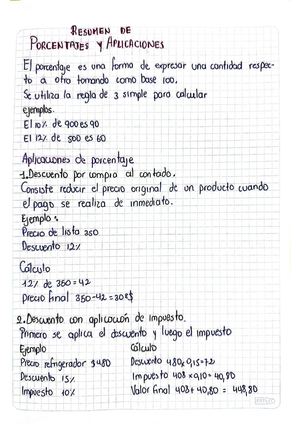 RESUMEN DE
PORCENTAJES Y APLICACIONES
El porcentaje es una forma de expresar una cantidad respec-
to a otro tomando como base 100.
Se utiliza la regla de 3 simple para calcular
ejemplos.
El 10% de 900 es 90
El 12% de 500 es 60
Aplicaciones de porcentaje
1. Descuento por compra al contado.
Consiste reducir el precio original de un producto cuando
el pago se realiza de inmediato.
Ejemplo:
Precio de lista 350
Descuento 12%
Cálculo
12% de 350 = 42
precio final 350-42 = 308$
2. Descuento con aplicación de impuesto.
Primero se aplica el descuento y luego el impuesto
Ejemplo Cálculo
Precio refrigerador $480 Descuento 480x0,15=72
Descuento 15% Impuesto 408 x0,10= 40,80
Impuesto 10% Valor final 408 + 40,80 = 448,80